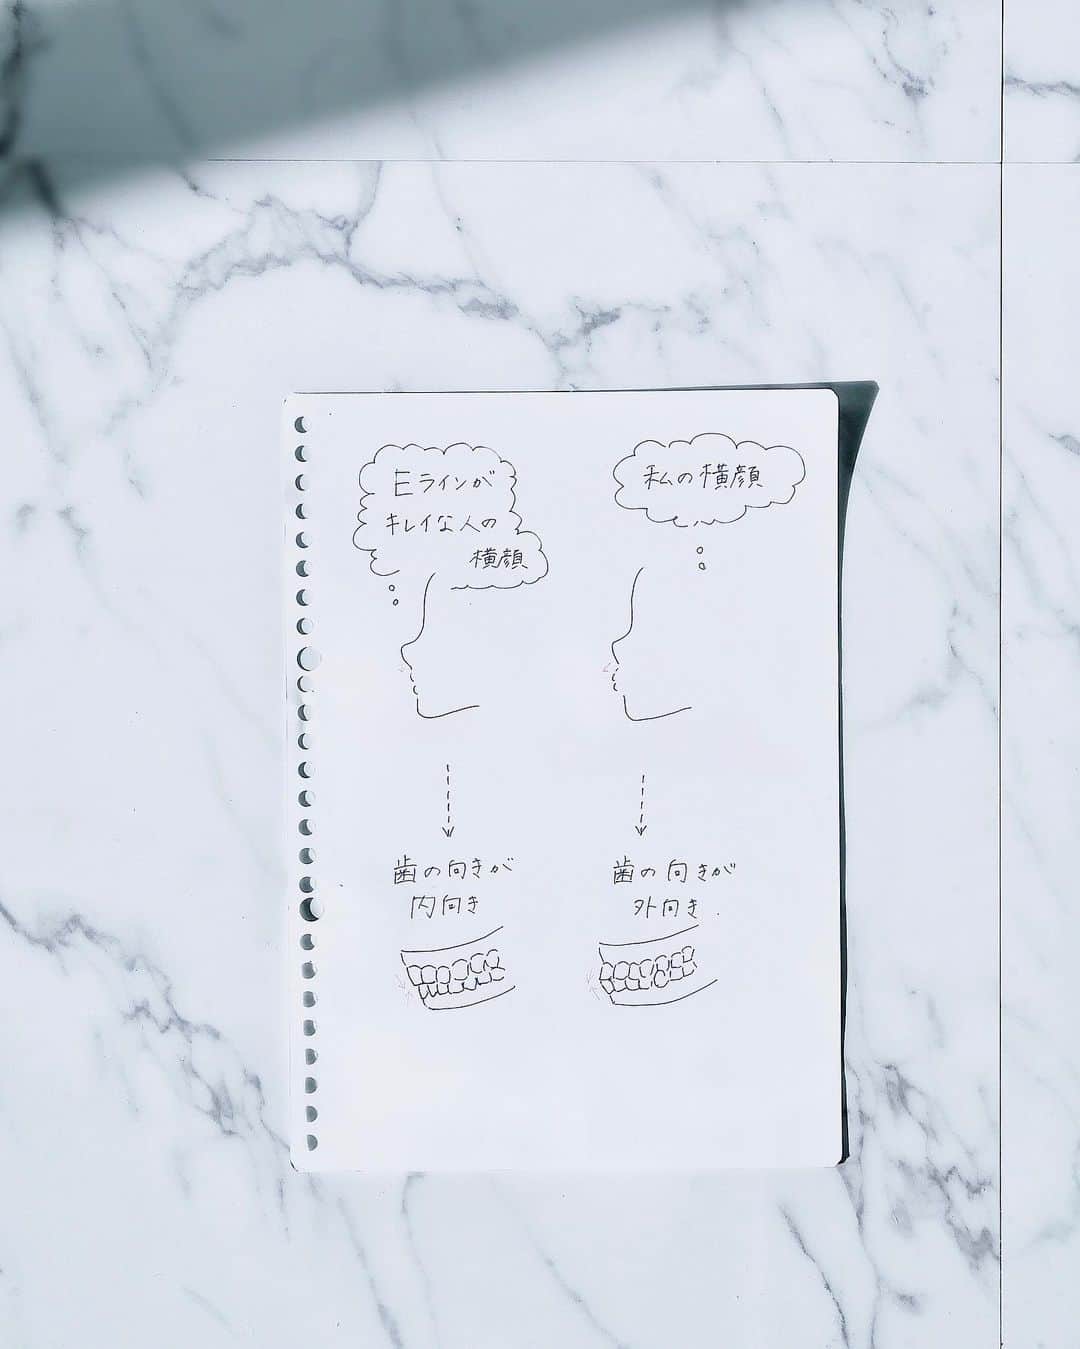 Eラインが
キレイな人の
横顔
私の横顔
歯の向きが
内向き
歯の向きが
外向き.